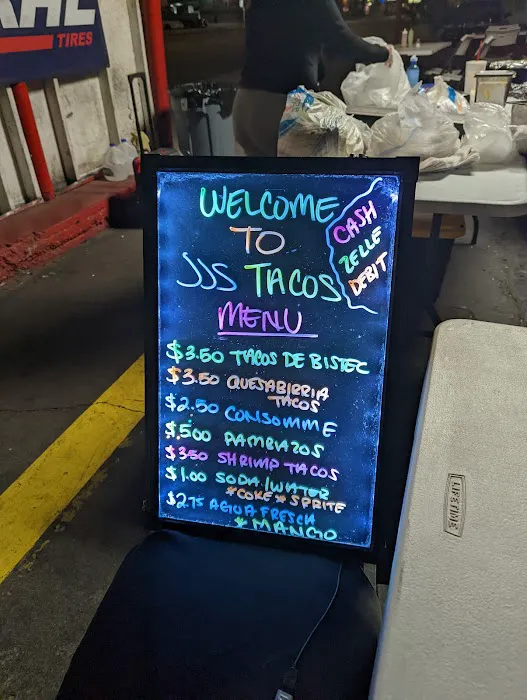 AHL
TIRES
WELCOME
TO
JJS TACOS
CASH
ZELLE
DEBIT
MENU
$3.50 TACOS DE BISTEC
$3.50 QUESABIRRIA
TACOS
$2.50 CONSOMME
$5.00 PAMBAZOS
$3.50 SHRIMP TACOS
$1.00 SODA/WATER
*COKE*SPRITE
$2.75 AGUA FRESCA
*MANGO
LIFETIME